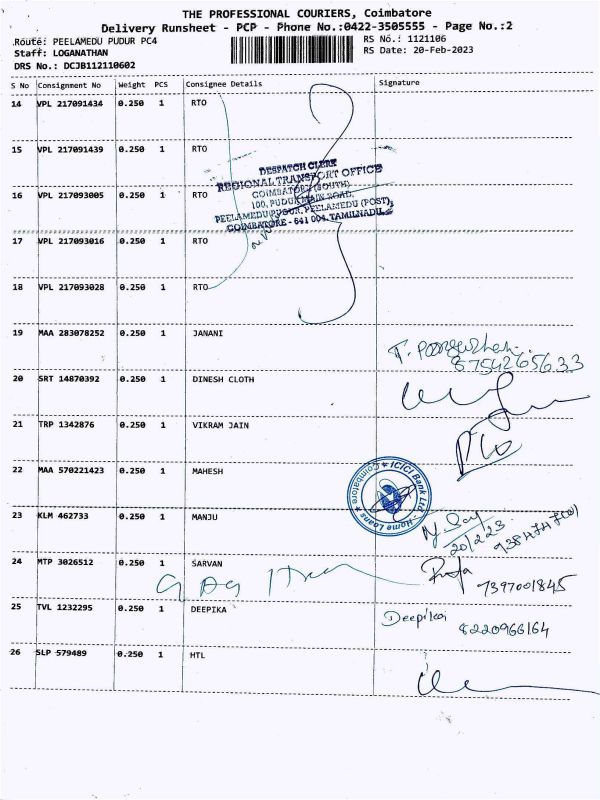 THE PROFESSIONAL COURIERS, Coimbatore
Delivery Runsheet - PCP - Phone No.:0422-3505555 - Page No.:2
Route: PEELAMEDU PUDUR PC4
RS No.: 1121106
Staff: LOGANATHAN
RS Date: 20-Feb-2023
DRS No.: DCJB112110602
S No Consignment No Weight PCS Consignee Details Signature
14 VPL 217091434 0.250 1 RTO
15 VPL 217091439 0.250 1 RTO
DESPATCH CLERK
REGIONAL TRANSPORT OFFICE
COIMBATORE (SOUTH)
16 VPL 217093005 0.250 1 RTO
100, PUDUR MAIN ROAD,
PEELAMEDU PUDUR, PEELAMEDU (POST),
COIMBATORE - 641 004, TAMILNADU.
17 VPL 217093016 0.250 1 RTO
18 VPL 217093028 0.250 1 RTO
19 MAA 283078252 0.250 1 JANANI
8754265633
20 SRT 14870392 0.250 1 DINESH CLOTH
21 TRP 1342876 0.250 1 VIKRAM JAIN
22 MAA 570221423 0.250 1 MAHESH
ICICI Bank Ltd. Home Loans Coimbatore
23 KLM 462733 0.250 1 MANJU
20/2/23
24 MTP 3026512 0.250 1 SARVAN
7397001845
25 TVL 1232295 0.250 1 DEEPIKA
Deepika
8220966164
26 SLP 579489 0.250 1 HTL